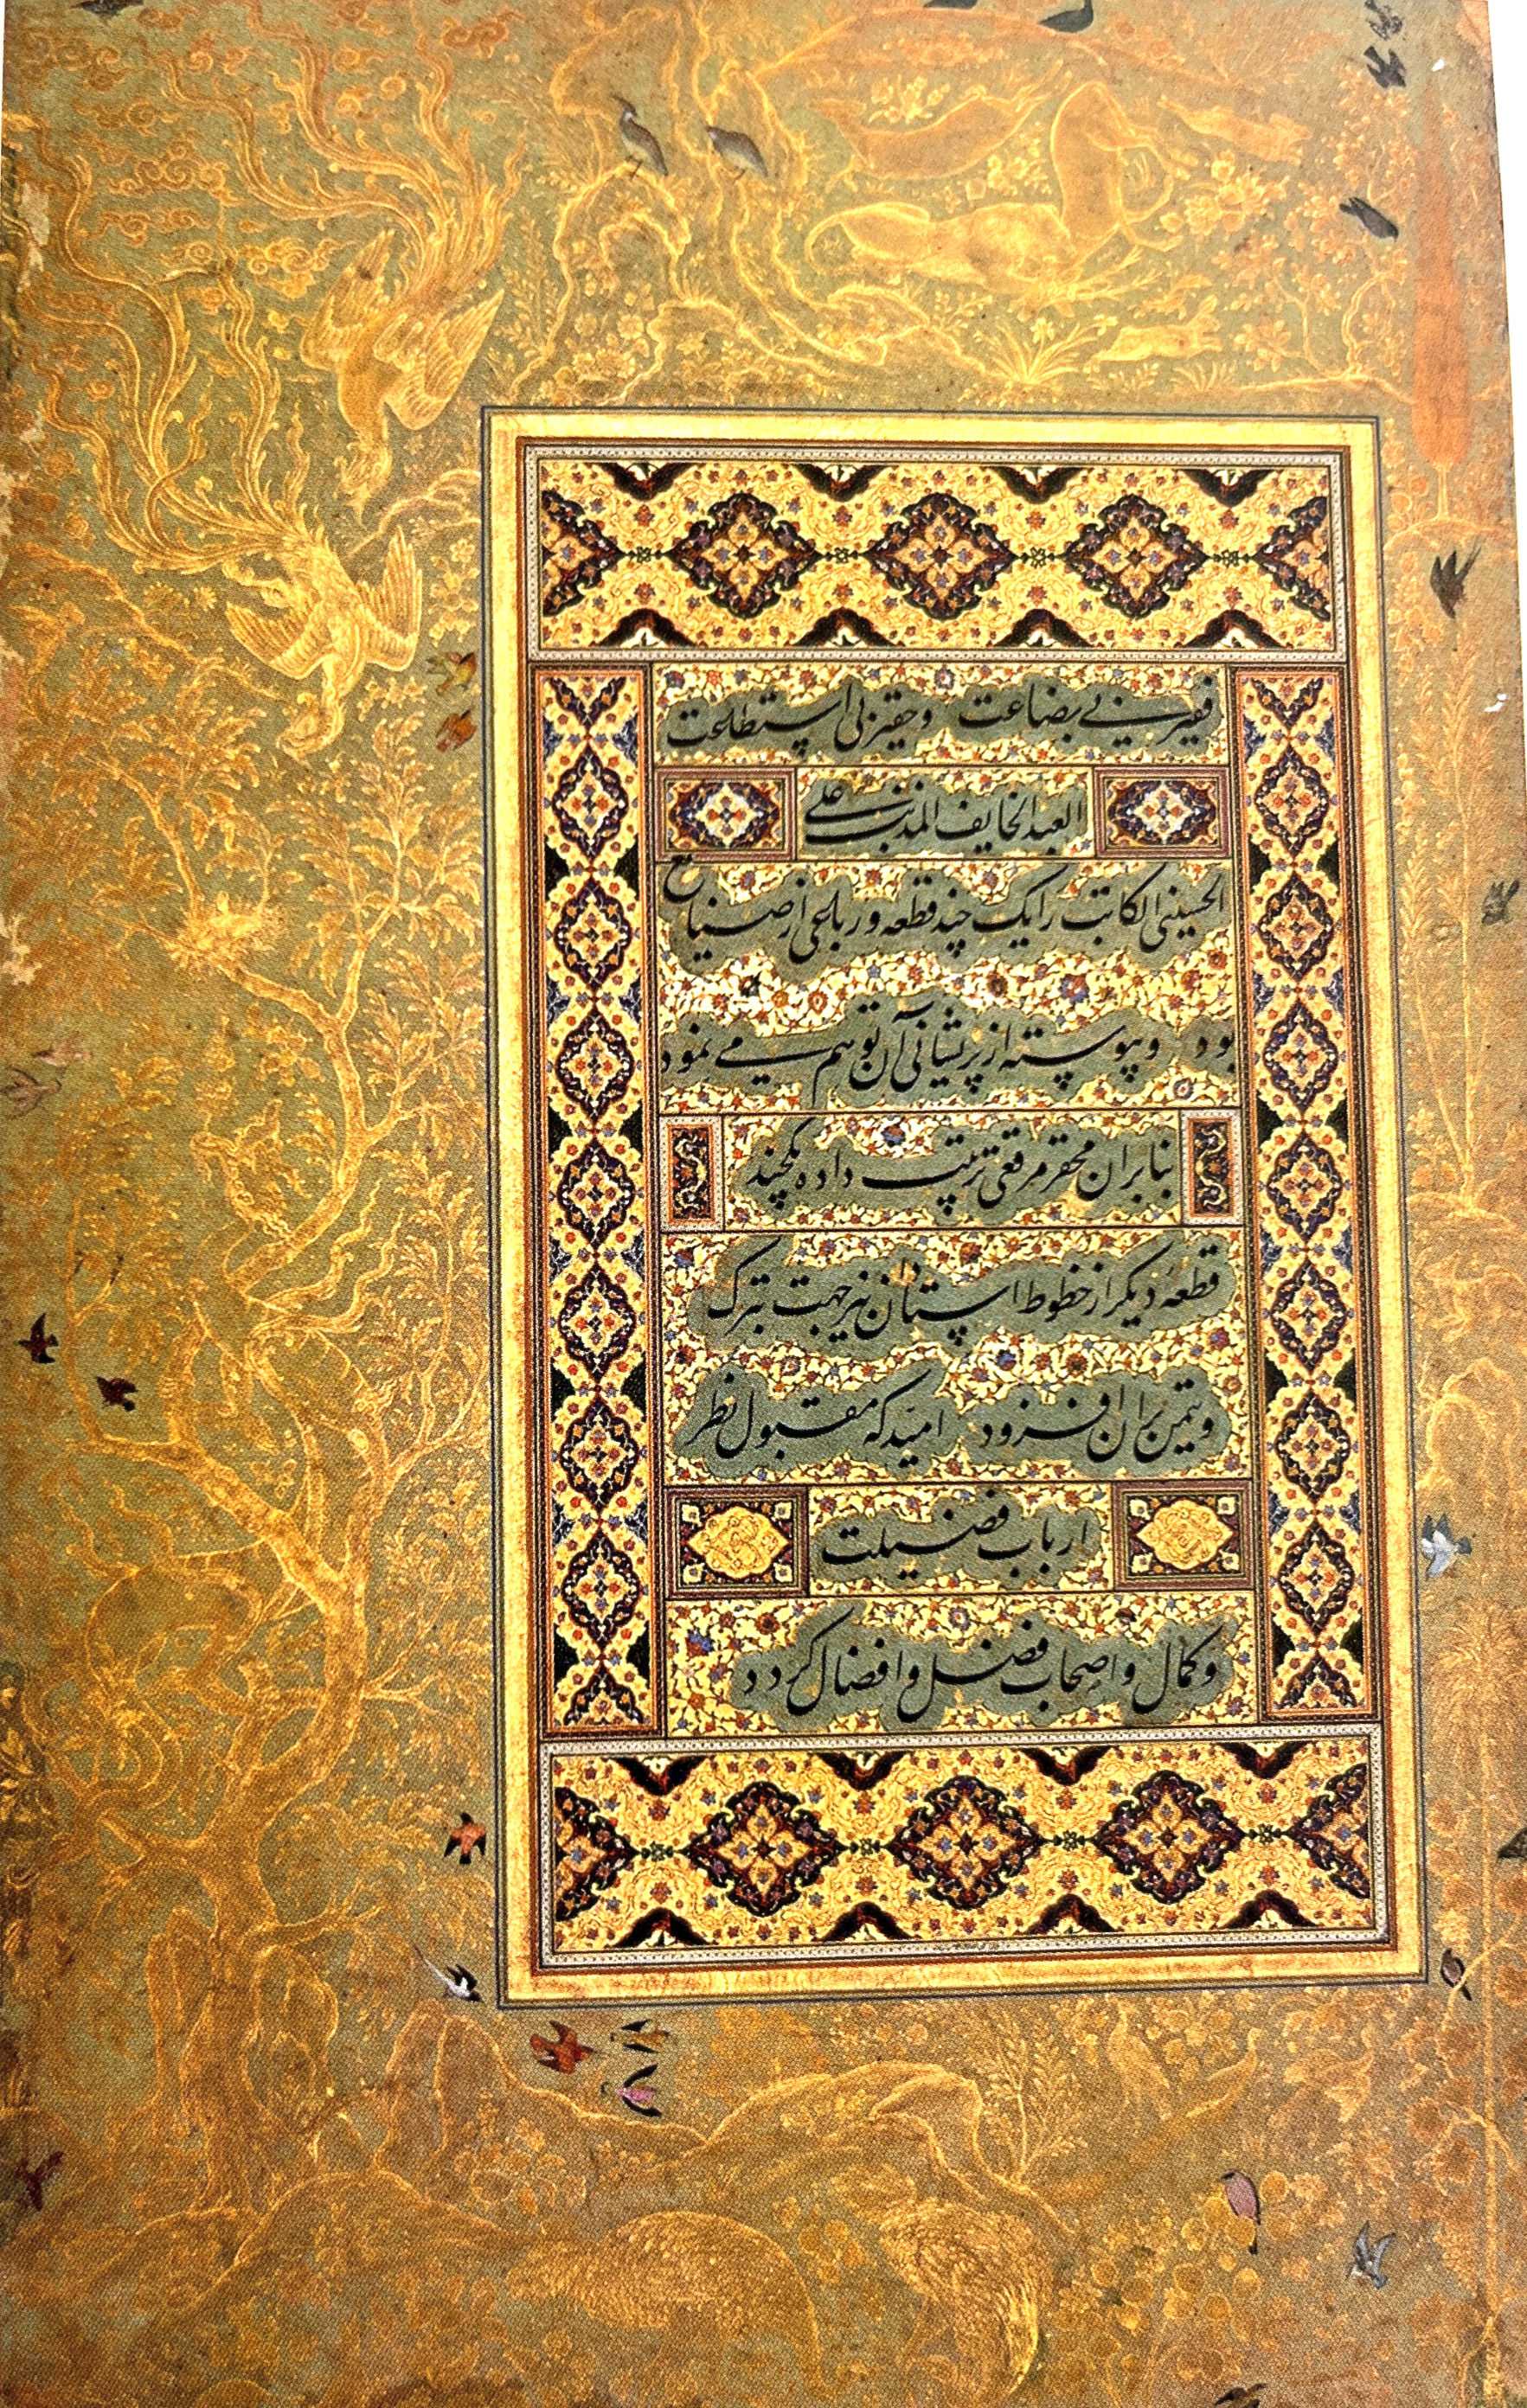 فقیر بی بضاعت و حقیر بی استطاعت
العبد الخایف المذنب علی
الحسینی الکاتب را یک چند قطعه و رباعی از صنایع
بود و پیوسته از پریشانی آن توهم می نمود
بنابران محقر مرقعی ترتیب داده یکچند
قطعه دیگر از خطوط استادان نیز جهت تبرک
و تیمن بران افزود امید که مقبول نظر
ارباب فضیلت
و کمال و اصحاب فضل و افضال گردد